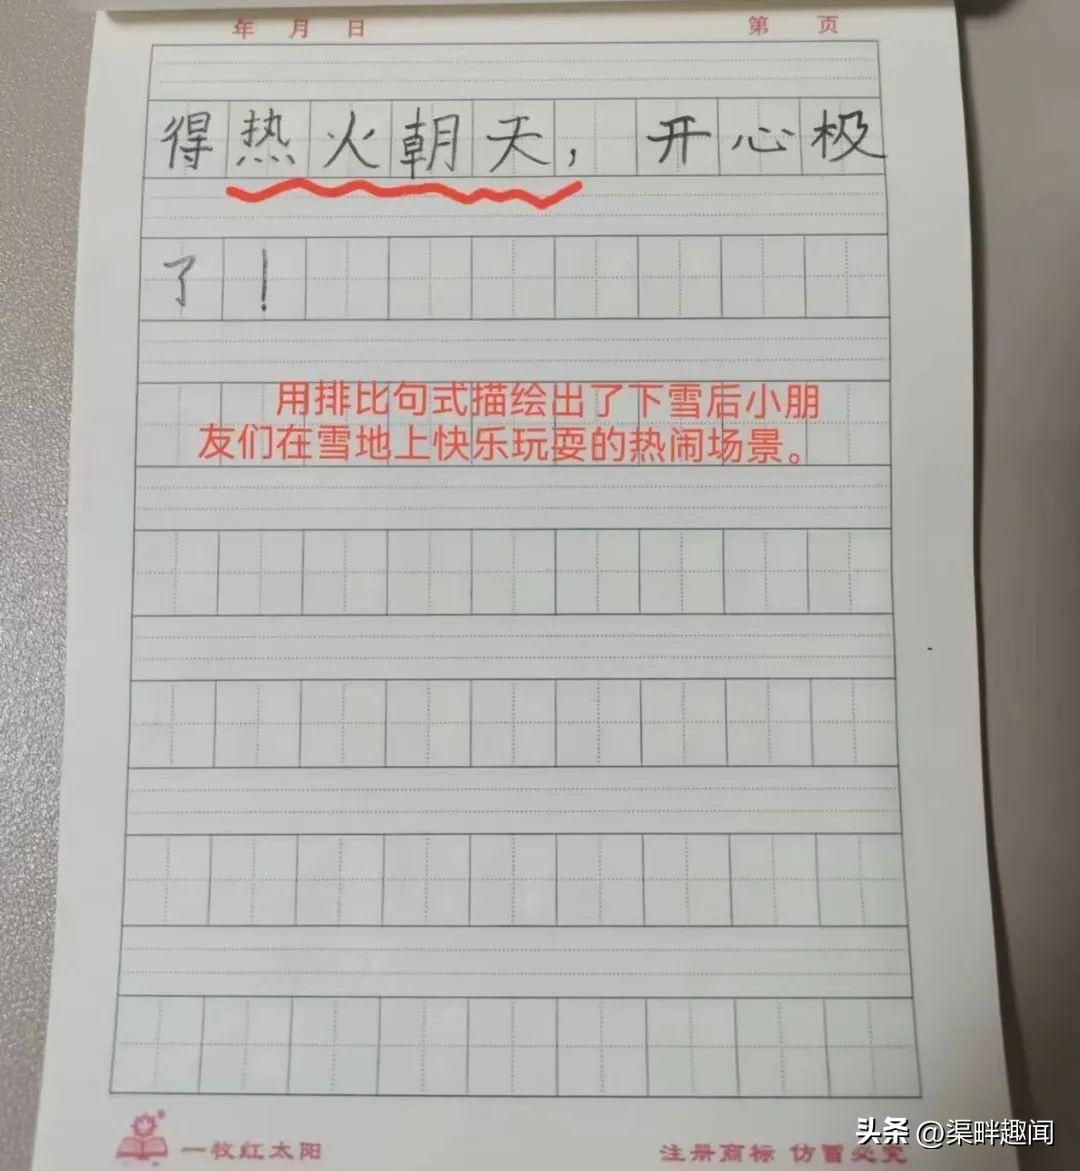 年 月 日 第 页
得热火朝天，开心极
了！
用排比句式描绘出了下雪后小朋
友们在雪地上快乐玩耍的热闹场景。
一牧红太阳 注册商标 仿冒必究
头条 @渠畔趣闻